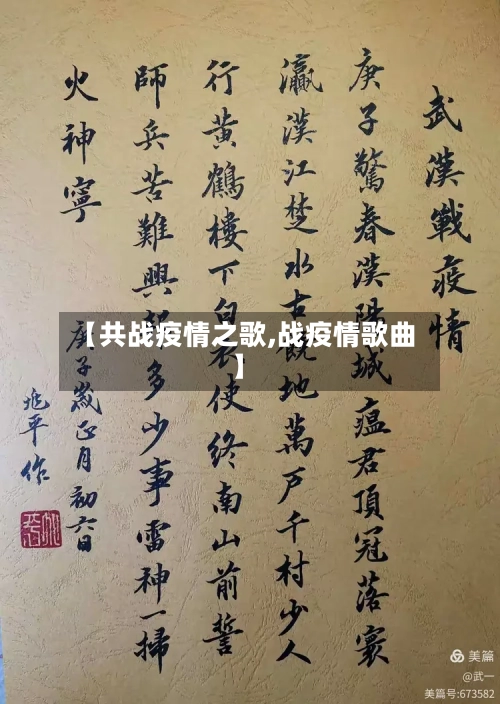 武漢戰疫情
庚子驚春漢陽城瘟君頂冠落寰
瀛漢江楚水古地萬户千村少人
行黃鶴樓下白衣使終南山前誓
師兵苦難興多少事雷神一掃
火神寧
庚子歲正月初六日
兆平作
【共战疫情之歌,战疫情歌曲
】
美篇
@武一
美篇号:673582